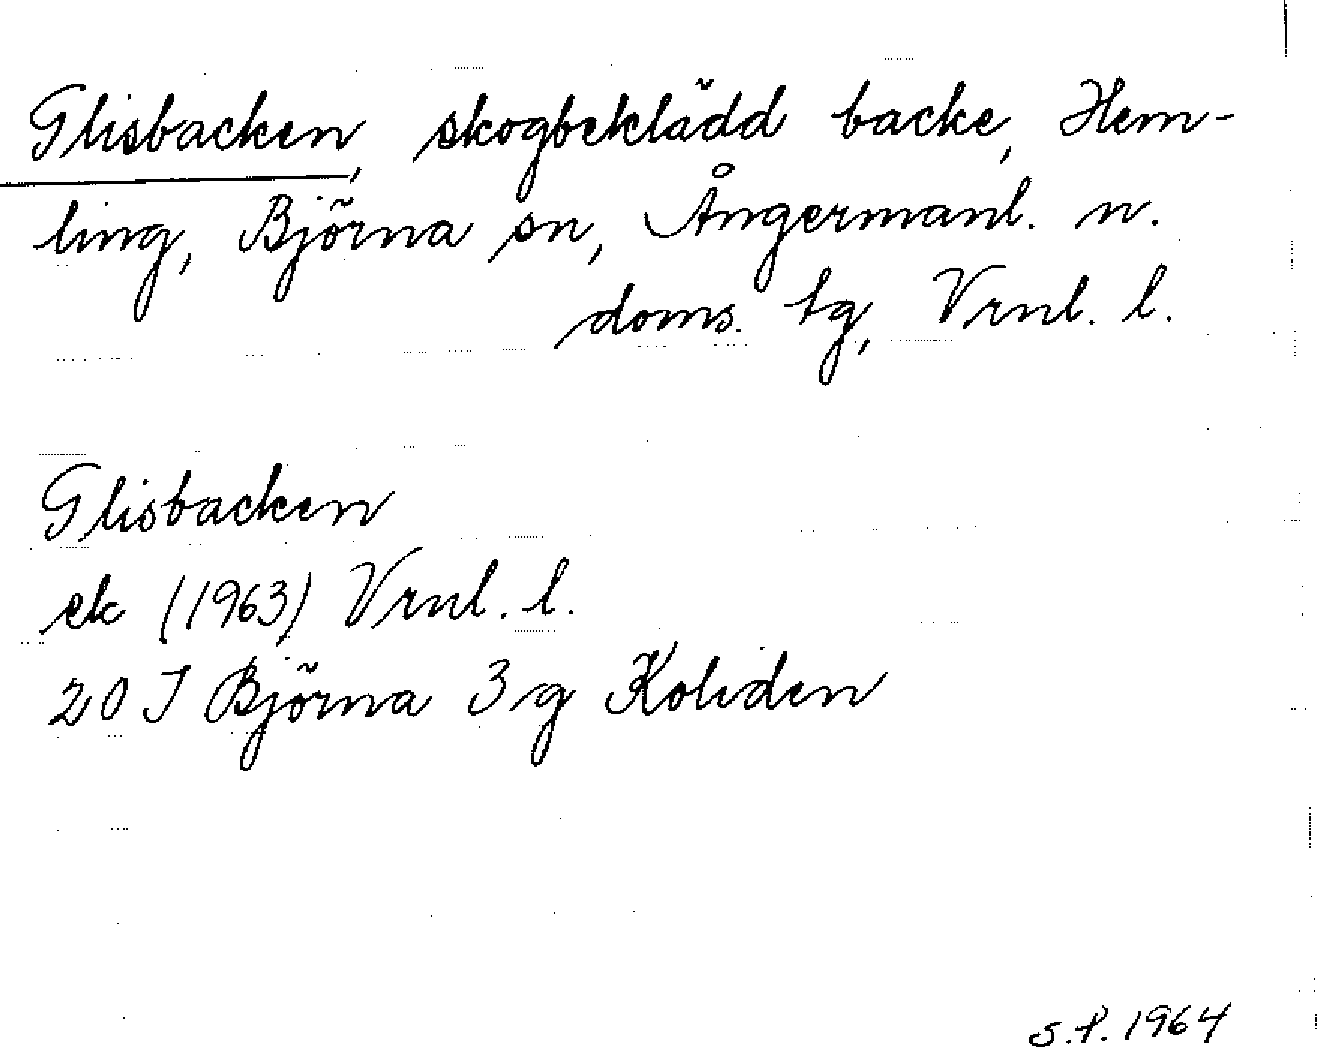 Glisbacken, skogbeklädd backe, Hem-
ling, Björna sn, Ångermanl. n.
doms. tg, Vrnl. l.
Glisbacken
ek (1963) Vrnl. l.
20 I Björna 3g Koliden
S.P. 1964